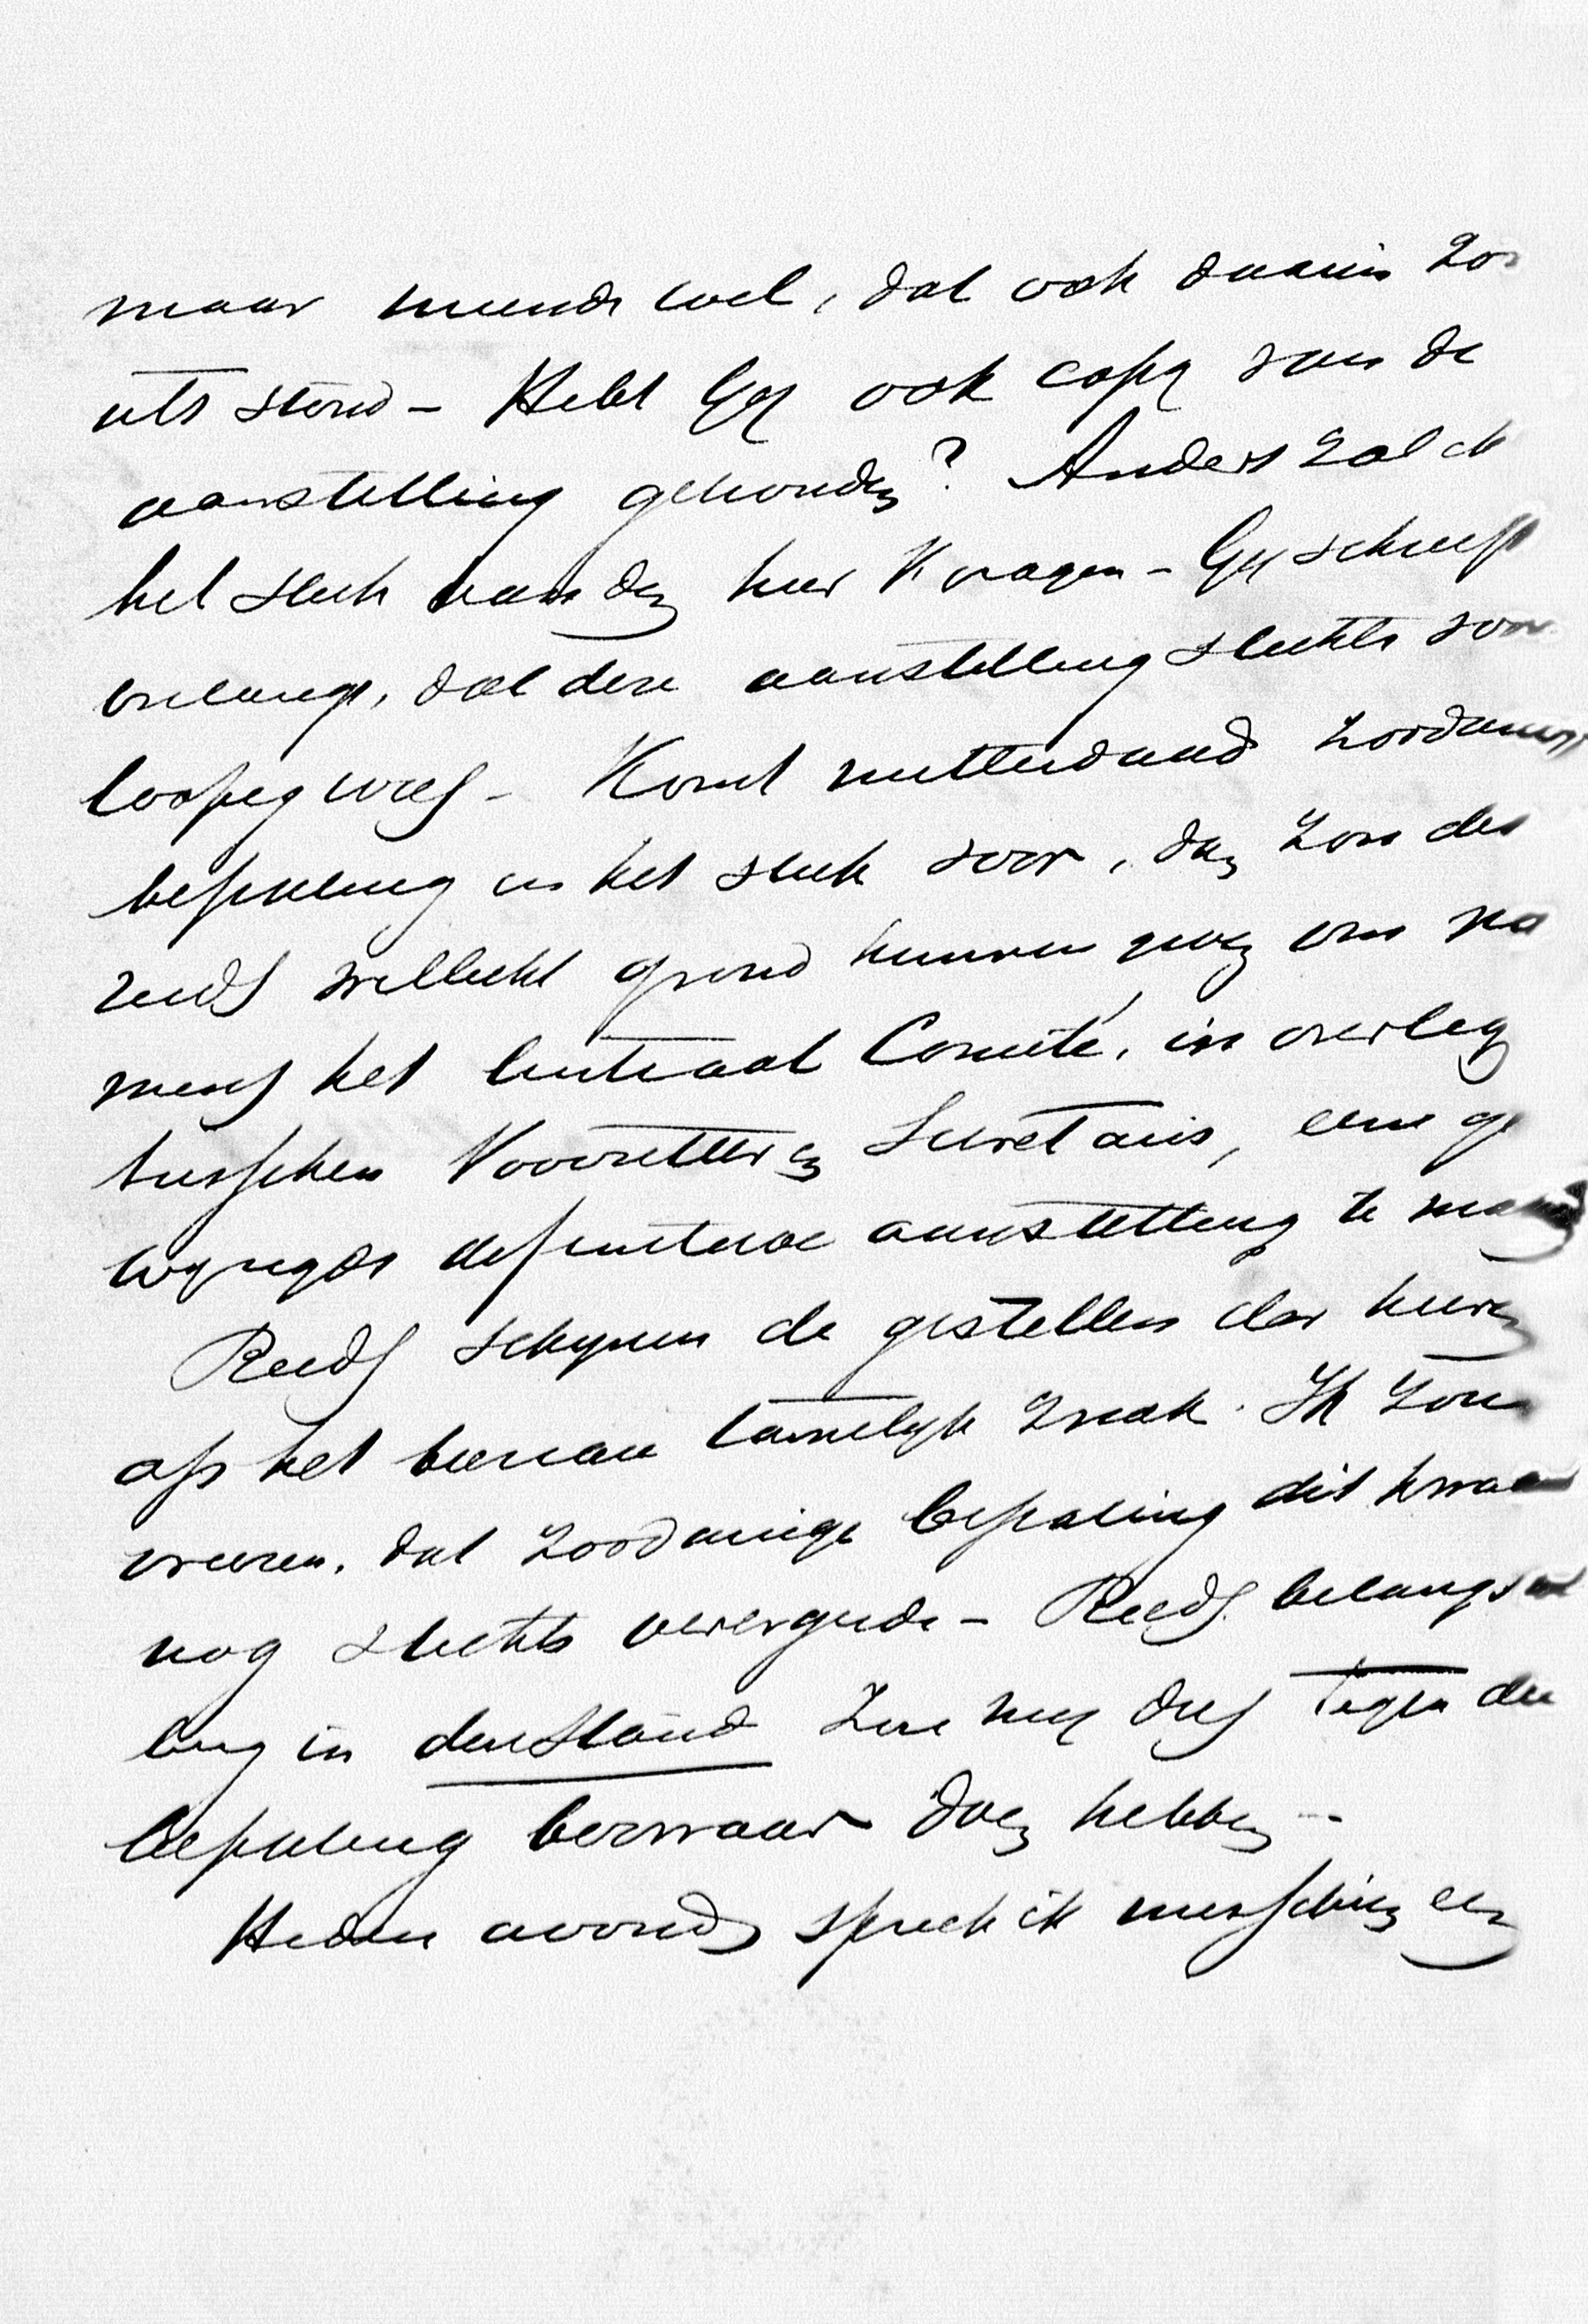 maar meende wel, dat ook daarin zo
iets stond – Hebt Gij ook copy van de
aanstelling gehouden? Anders zal ik
het stuk van den heer K vragen – Gij schreeft
onlangs, dat deze aanstelling slechts voor
loopig was – Komt metterdaad zoodanige
bepaling in het stuk voor, dan zou des
reeds wellicht grond kunnen geven om na
mens het Centraal Comité, in overleg
tusschen Voorzitter en Secretaris, eene ge
wijzigde definitieve aanstelling te
Reeds schijnen de gestellen der heeren
op het bureau tamelijk zwak. Ik zou
vreezen, dat zoodanige bepaling dit kwaad
nog slechts verergerde – Reeds
ling in dien stand zou mij dus tegen die
bepaling bezwaar doen hebben –
Heden avond spreek ik misschien een